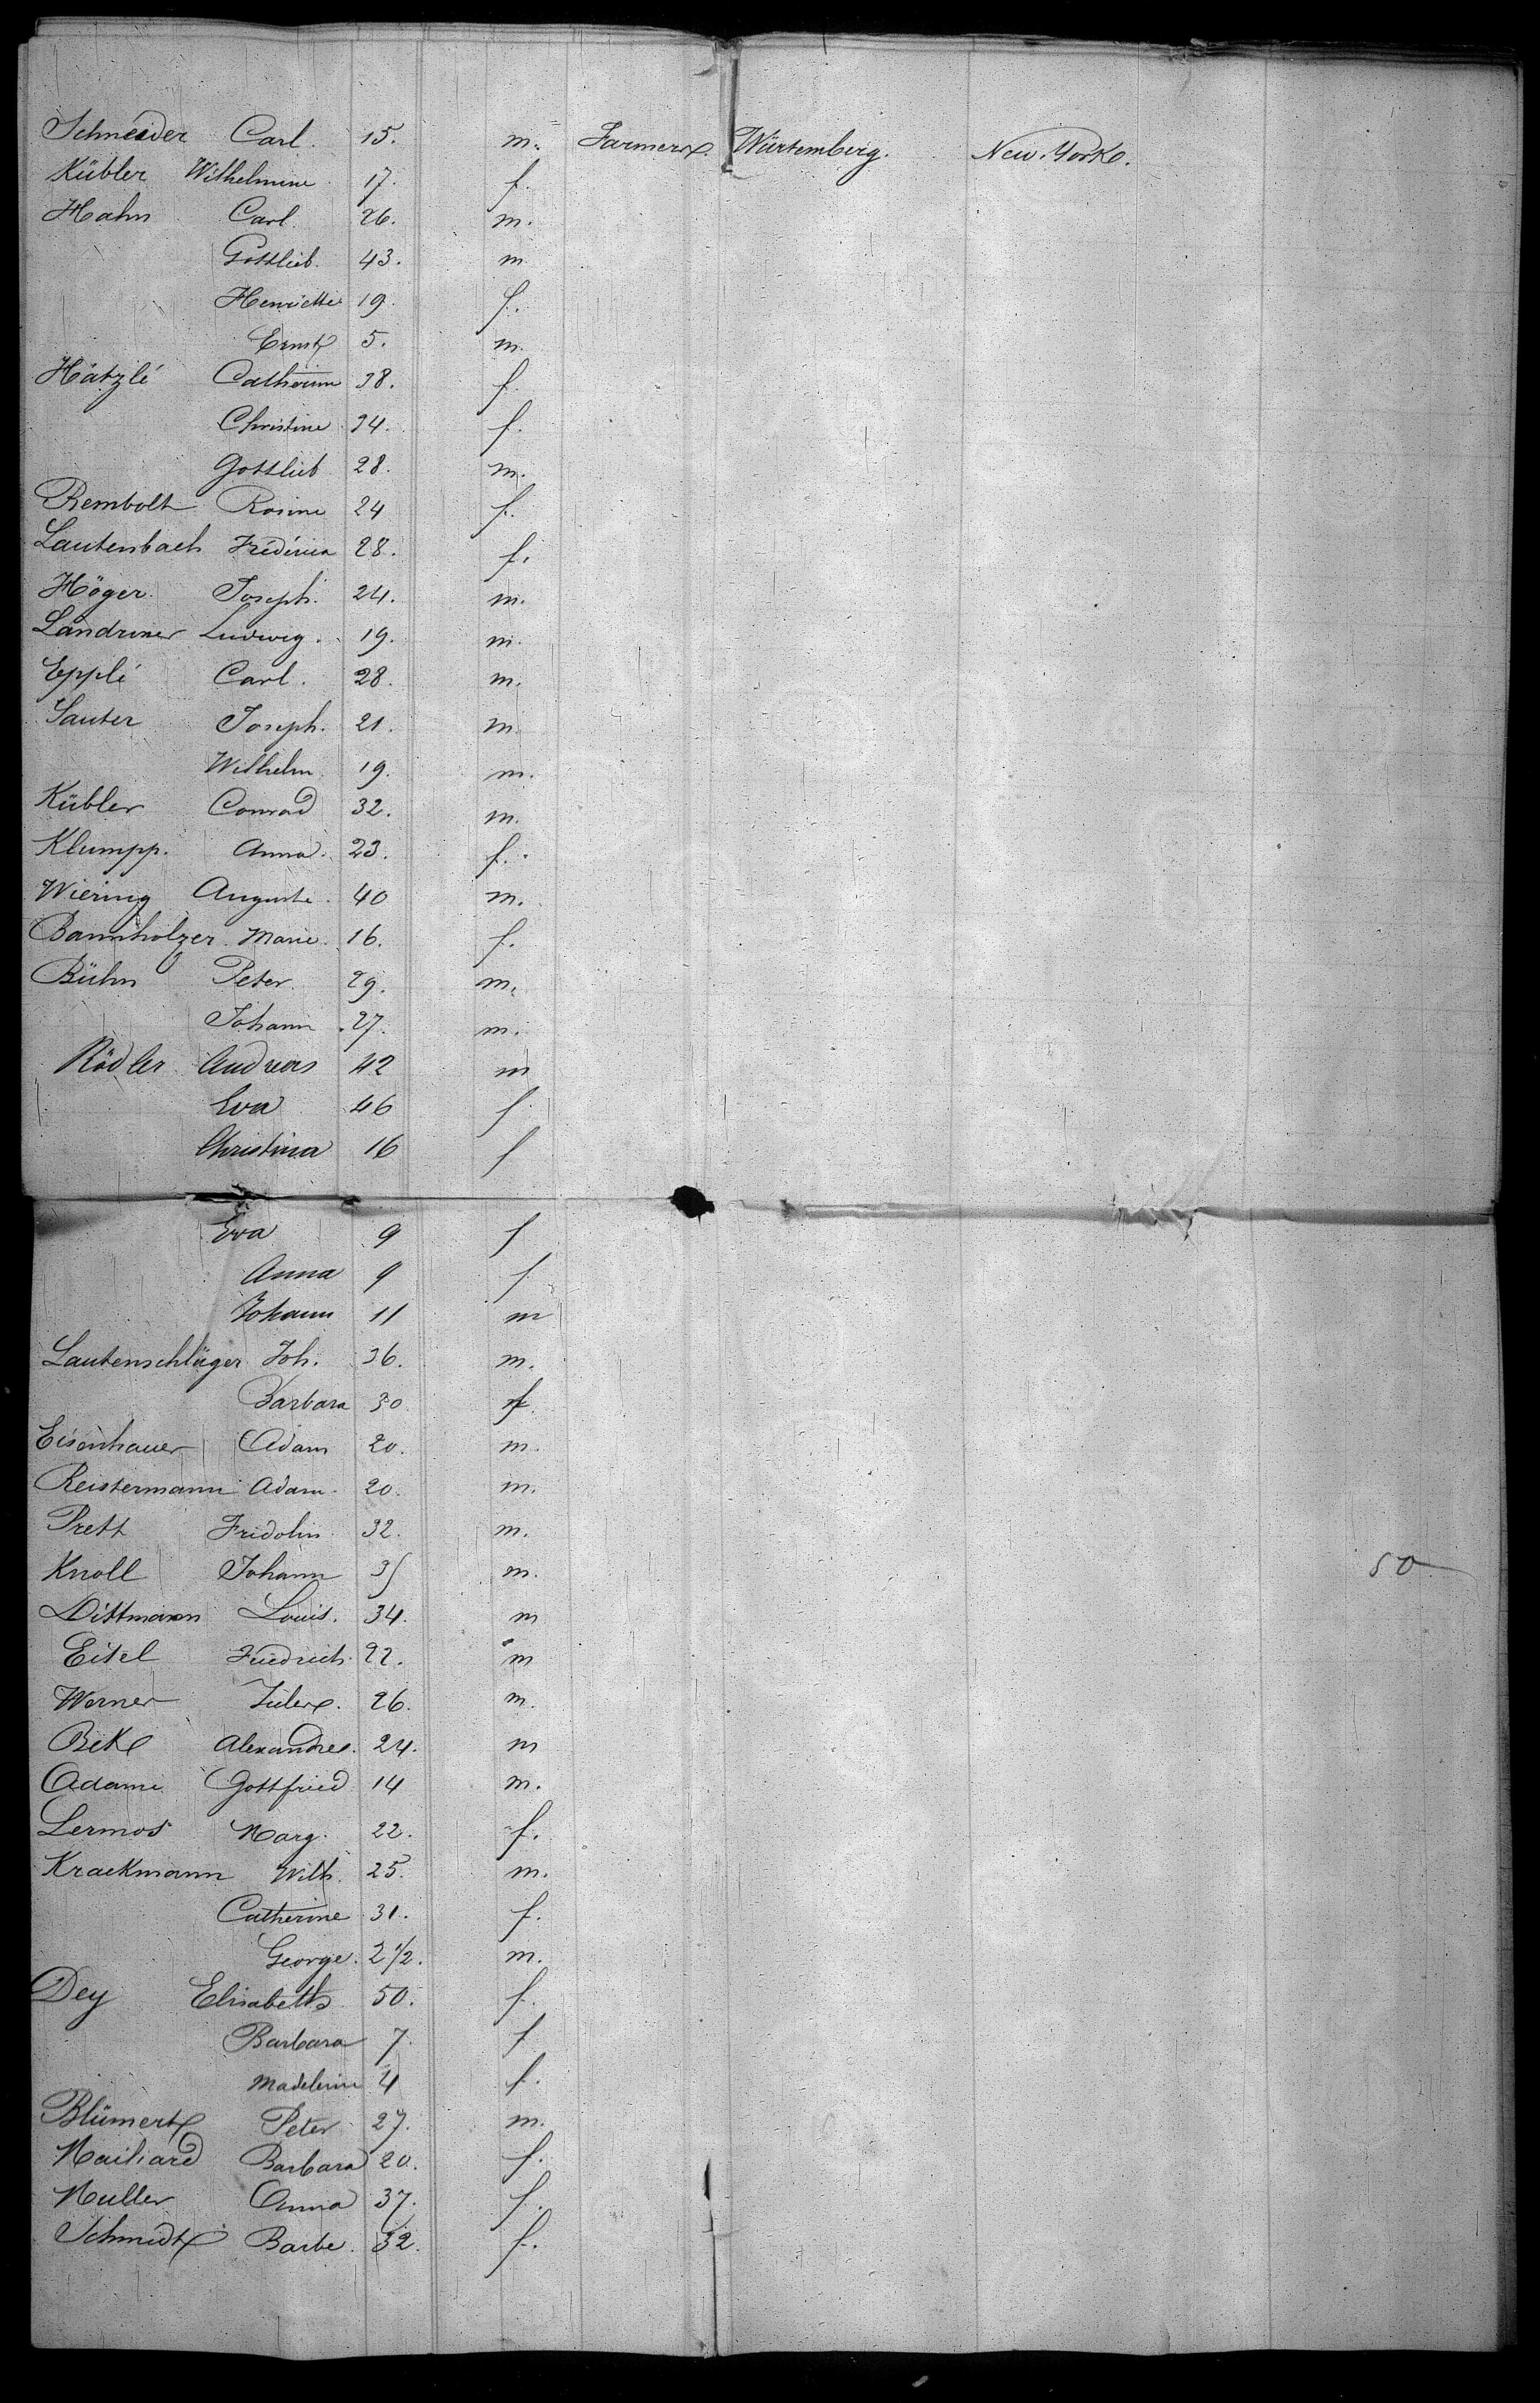 Schneider Carl. 15. m. Farmer Würtemberg. New York.
Kübler Wilhelmine 17. f.
Hahn Carl. 26. m.
Gottlieb. 43. m
Henriette 19. f.
Ernst 5. m.
Hätzlé Catharine 38. f.
Christine 24. f.
Gottlieb 28. m.
Rembolt Rosine 24 f.
Lautenbach Fréderica 28. f.
Höger. Joseph. 24. m.
Ludwig. 19. m.
Epplé Carl. 28. m.
Sauter Joseph. 21. m.
Wilhelm. 19. m.
Kübler Conrad 32. m.
Klumpp. Anna. 23. f.
Wiering Auguste. 40 m.
Bannholzer. Marie. 16. f.
Bühn Peter. 29. m.
Johann 27. m.
Rödler Andreas 42 m
Eva 46 f
Christina 16 f
Eva 9 f
Anna 9 f
Johann 11 m
Lautenschläger Joh. 36. m.
Barbara 30. f.
Eisenhauer Adam 20. m.
Reistermann Adam. 20. m.
Prett Fridolin 32. m.
Knoll Johann 35 m. 50
Dittmann Louis. 34. m
Eitel Friedrich. 22. m
Werner Jules. 26. m.
Beke Alexandre. 24. m
Adami Gottfried 14 m.
Lermos Marg. 22. f.
Krackmann Wilh. 25. m.
Catherine 31. f.
George. 2 1/2. m.
Dey Elisabeth 50. f.
Barbara 7. f
Madeleine 4 f.
Blümert Peter 27. m.
Mailiard Barbara 20. f.
Muller Anna 37. f.
Schmidt Barbe. 32. f.